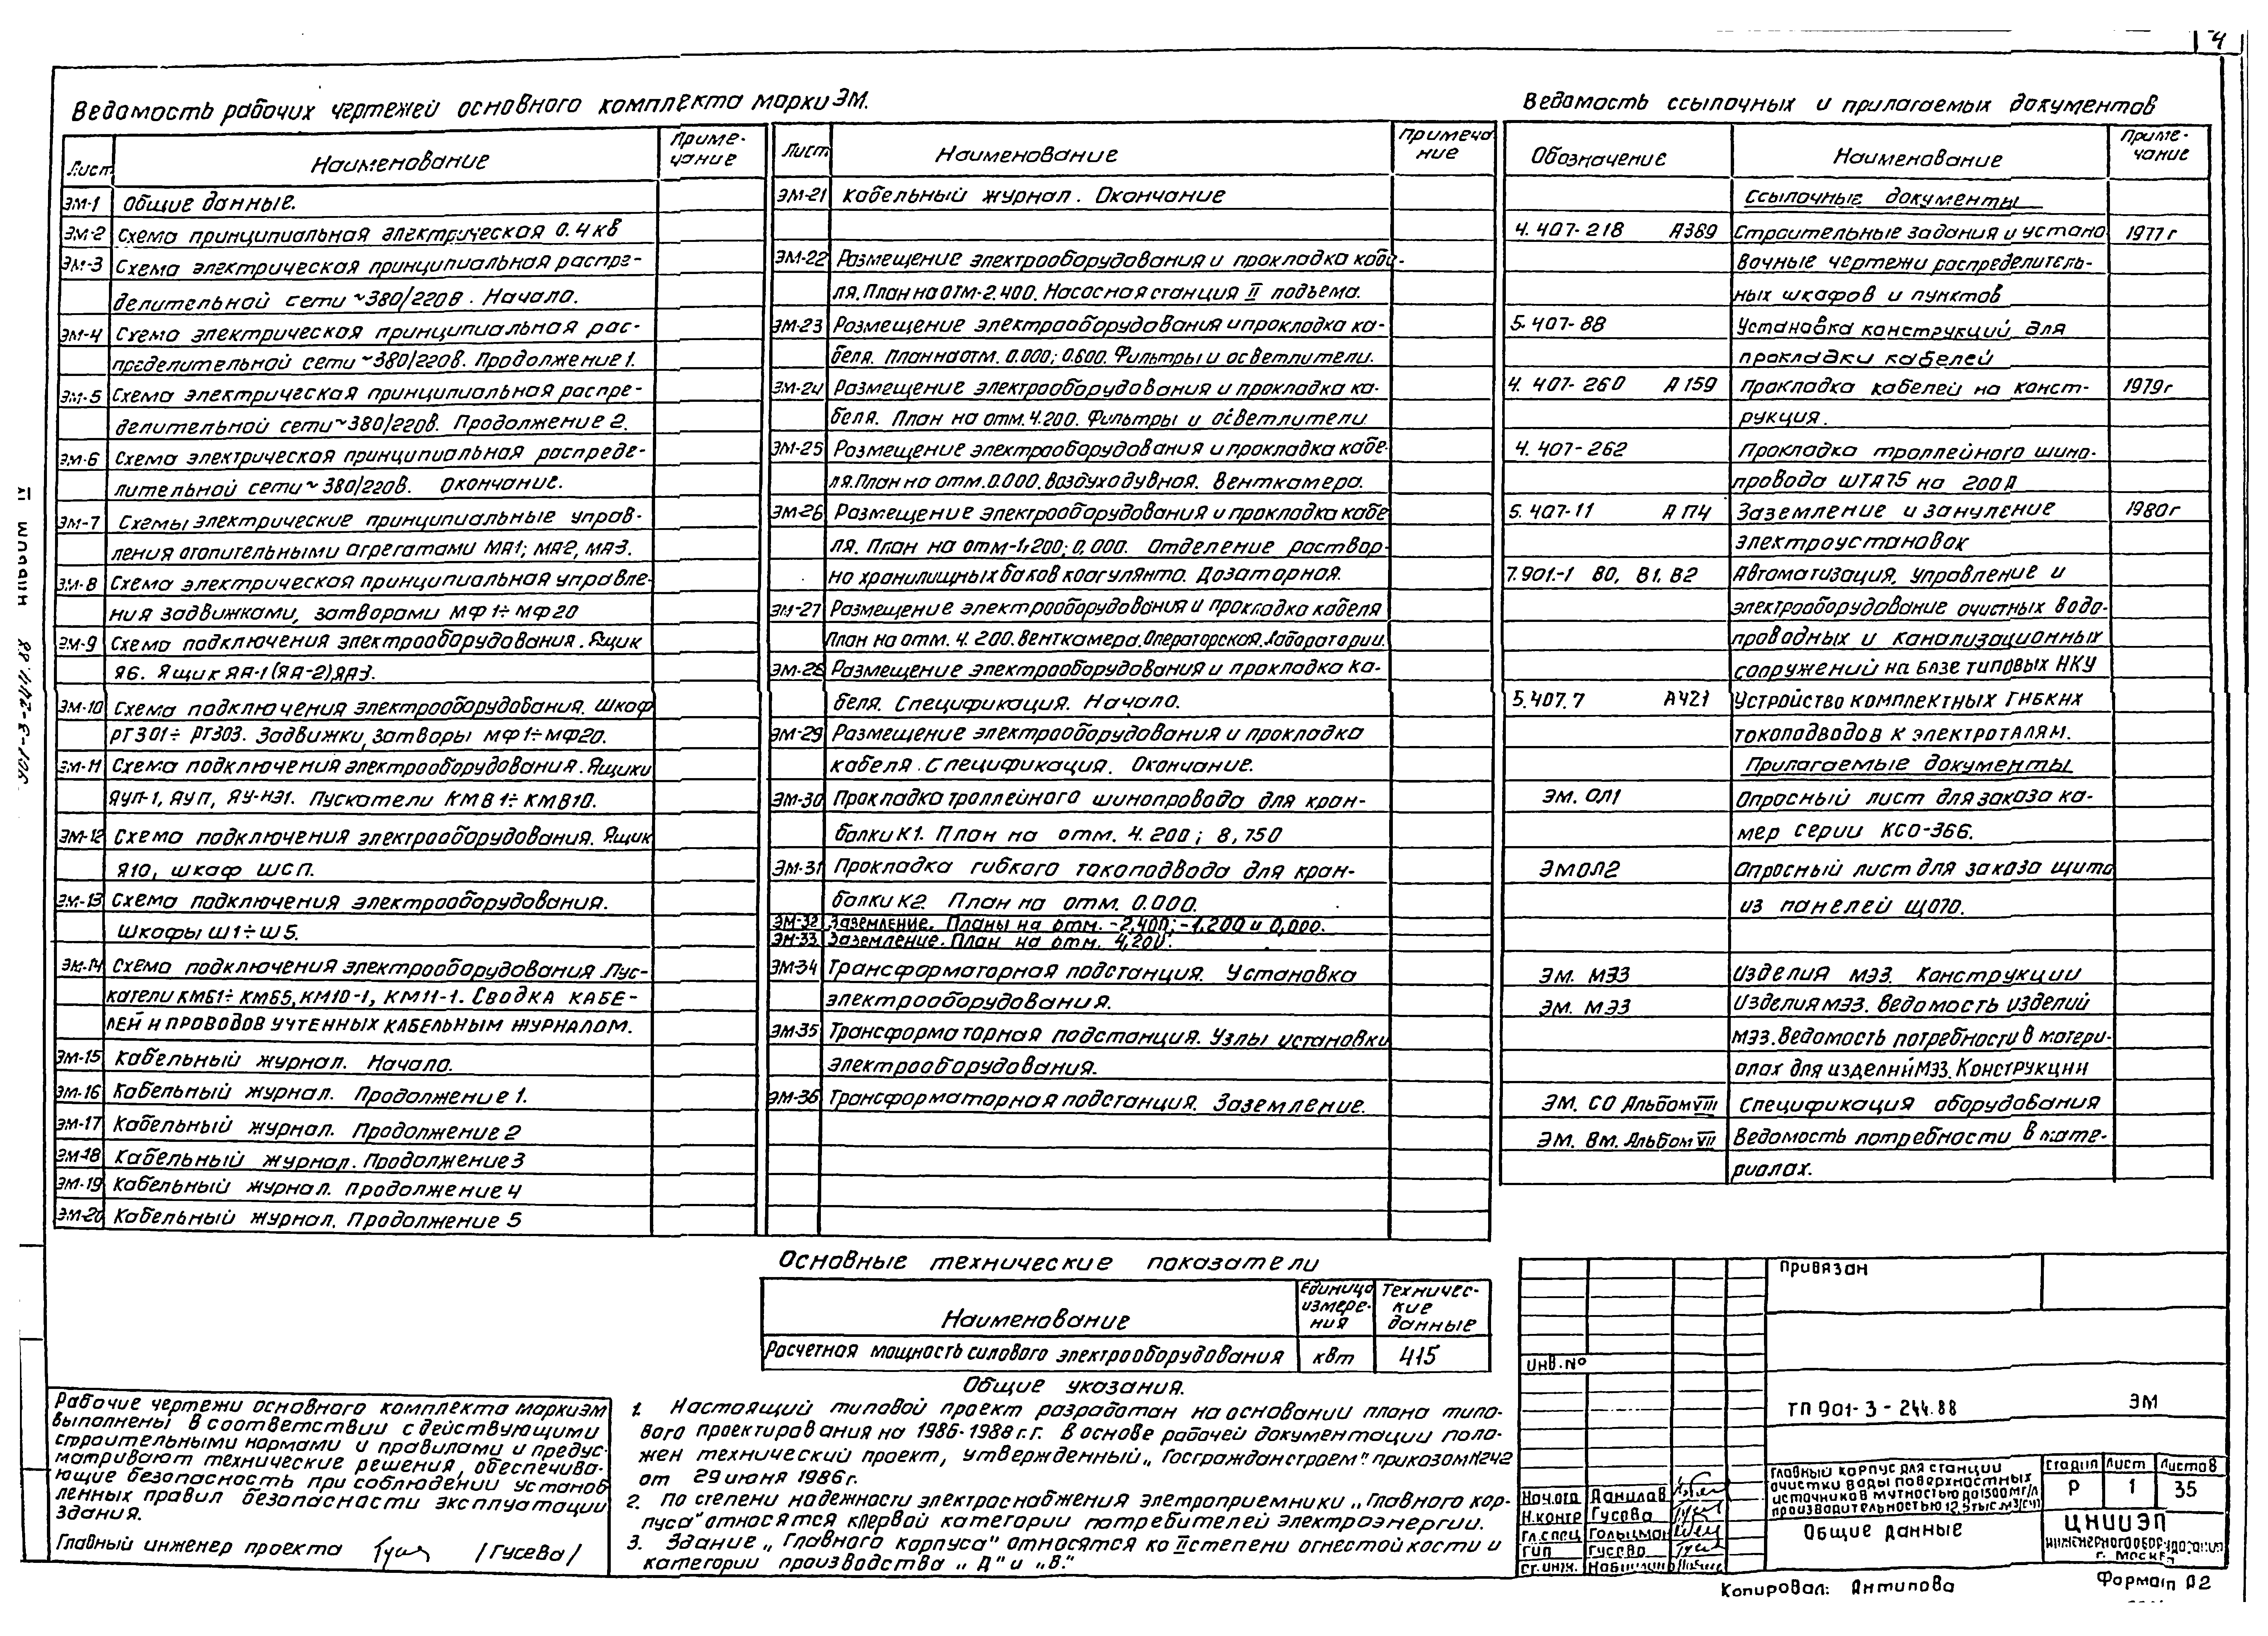 4
Ведомость рабочих чертежей основного комплекта марки ЭМ.
Лист Наименование Приме-
чание
ЭМ-1 Общие данные.
ЭМ-2 Схема принципиальная электрическая 0.4 кв
ЭМ-3 Схема электрическая принципиальная распре-
делительной сети ~380/220в. Начало.
ЭМ-4 Схема электрическая принципиальная рас-
пределительной сети ~380/220в. Продолжение 1.
ЭМ-5 Схема электрическая принципиальная распре-
делительной сети ~380/220в. Продолжение 2.
ЭМ-6 Схема электрическая принципиальная распреде-
лительной сети ~380/220в. Окончание.
ЭМ-7 Схемы электрические принципиальные управ-
ления отопительными агрегатами МА1; МА2, МА3.
ЭМ-8 Схема электрическая принципиальная управле-
ния задвижками, затворами МФ1÷МФ20
ЭМ-9 Схема подключения электрооборудования. Ящик
Я6. Ящик ЯА-1(ЯА-2),ЯА3.
ЭМ-10 Схема подключения электрооборудования. Шкаф
РТ301÷РТ303. Задвижки, затворы МФ1÷МФ20.
ЭМ-11 Схема подключения электрооборудования. Ящики
ЯУП-1, ЯУП, ЯУ-НЭ1. Пускатели КМВ1÷КМВ10.
ЭМ-12 Схема подключения электрооборудования. Ящик
Я10, шкаф ШСП.
ЭМ-13 Схема подключения электрооборудования.
Шкафы Ш1÷Ш5.
ЭМ-14 Схема подключения электрооборудования Пус-
катели КМБ1÷КМБ5, КМ10-1, КМ11-1. Сводка кабе-
лей и проводов учтенных кабельным журналом.
ЭМ-15 Кабельный журнал. Начало.
ЭМ-16 Кабельный журнал. Продолжение 1.
ЭМ-17 Кабельный журнал. Продолжение 2
ЭМ-18 Кабельный журнал. Продолжение 3
ЭМ-19 Кабельный журнал. Продолжение 4
ЭМ-20 Кабельный журнал. Продолжение 5
Лист Наименование Примеча
ние
ЭМ-21 Кабельный журнал. Окончание
ЭМ-22 Размещение электрооборудования и прокладка кабе-
ля. План на отм-2.400. Насосная станция II подъема.
ЭМ-23 Размещение электрооборудования и прокладка ка-
беля. План на отм. 0.000; 0.600. Фильтры и осветлители.
ЭМ-24 Размещение электрооборудования и прокладка ка-
беля. План на отм. 4.200. Фильтры и осветлители
ЭМ-25 Размещение электрооборудования и прокладка кабе-
ля. План на отм. 0.000. Воздуходувная. Венткамера.
ЭМ-26 Размещение электрооборудования и прокладка кабе
ля. План на отм-1,200; 0,000. Отделение раствор-
но хранилищных баков коагулянта. Дозаторная.
ЭМ-27 Размещение электрооборудования и прокладка кабеля
План на отм. 4.200. Венткамера. Операторская. Лаборатории.
ЭМ-28 Размещение электрооборудования и прокладка ка-
беля. Спецификация. Начало.
ЭМ-29 Размещение электрооборудования и прокладка
кабеля. Спецификация. Окончание.
ЭМ-30 Прокладка троллейного шинопровода для кран-
балки К1. План на отм. 4.200; 8,750
ЭМ-31 Прокладка гибкого токоподвода для кран-
балки К2. План на отм. 0.000.
ЭМ-32 Заземление. Планы на отм. -2,400; -1,200 и 0,000.
ЭМ-33 Заземление. План на отм. 4,200.
ЭМ-34 Трансформаторная подстанция. Установка
электрооборудования.
ЭМ-35 Трансформаторная подстанция. Узлы установки
электрооборудования.
ЭМ-36 Трансформаторная подстанция. Заземление.
Ведомость ссылочных и прилагаемых документов
Обозначение Наименование Приме-
чание
Ссылочные документы
4.407-218 А389 Строительные задания и устано 1977г
вочные чертежи распределитель-
ных шкафов и пунктов
5.407-88 Установка конструкций для
прокладки кабелей
4.407-260 А159 Прокладка кабелей на конст- 1979г
рукция.
4.407-262 Прокладка троллейного шино-
провода ШТА75 на 200А
5.407-11 А П4 Заземление и зануление 1980г
электроустановок
7.901-1 В0, В1, В2 Автоматизация, управление и
электрооборудование очистных водо-
проводных и канализационных
сооружений на базе типовых НКУ
5.407.7 А421 Устройство комплектных гибких
токоподводов к электроталям.
Прилагаемые документы
ЭМ. ОЛ1 Опросный лист для заказа ка-
мер серии КСО-366.
ЭМОЛ2 Опросный лист для заказа щита
из панелей ЩО70.
ЭМ. МЭЗ Изделия МЭЗ. Конструкции
ЭМ. МЭЗ Изделия МЭЗ. Ведомость изделий
МЭЗ. Ведомость потребности в матери-
алах для изделий МЭЗ. Конструкции
ЭМ. СО Альбом VIII Спецификация оборудования
ЭМ. ВМ. Альбом VII Ведомость потребности в мате-
риалах.
901-3-244.88 Альбом VI
Основные технические показатели
Наименование Единица измере-ния Техничес-кие данные
Расчетная мощность силового электрооборудования квт 415
Рабочие чертежи основного комплекта марки ЭМ
выполнены в соответствии с действующими
строительными нормами и правилами и предус-
матривают технические решения, обеспечива-
ющие безопасность при соблюдении установ
ленных правил безопасности эксплуатации
здания.
Главный инженер проекта /Гусева/
Общие указания.
1. Настоящий типовой проект разработан на основании плана типо-
вого проектирования на 1986-1988 г.г. В основе рабочей документации поло-
жен технический проект, утвержденный „Госгражданстроем" приказом №242
от 29 июня 1986г.
2. По степени надежности электроснабжения элетроприемники „Главного кор-
пуса" относятся к первой категории потребителей электроэнергии.
3. Здание „Главного корпуса" относятся ко II степени огнестойкости и
категории производства „Д" и „В."
Привязан
Инв.№
ТП 901-3-244.88 ЭМ
Нач.отд Данилов
Н.контр Гусева
Гл.спец Гольцман
Гип Гусева
Ст.инж.
Главный корпус для станции
очистки воды поверхностных
источников мутностью до 1500мг/л
производительностью 12,5тыс.м3/сут
Стадия Лист Листов
Р 1 35
Общие данные
ЦНИИЭП
инженерного оборудования
г. Москва
Копировал: Антипова
Формат А2